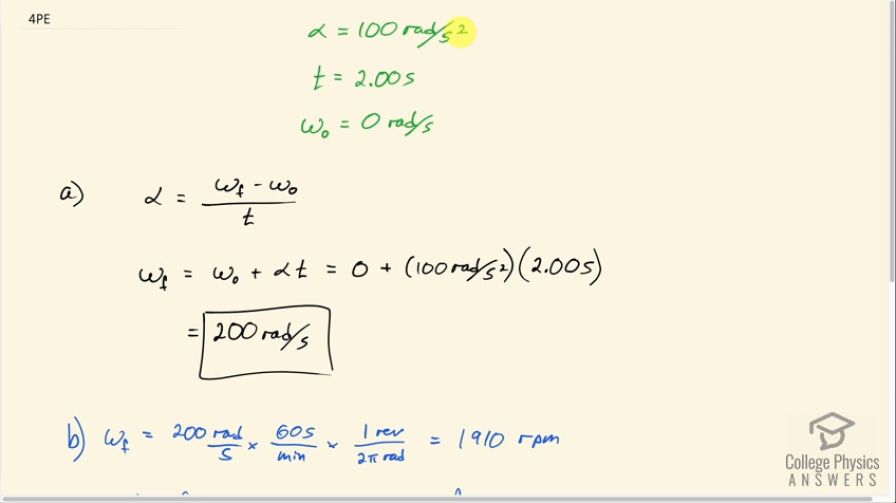 4PE
α = 100 rad/s²
t = 2.00 s
ω₀ = 0 rad/s
a) α = (ω_f - ω₀)/t
ω_f = ω₀ + αt = 0 + (100 rad/s²)(2.00 s)
= 200 rad/s
b) ω_f = 200 rad/s × 60 s/min × 1 rev/2π rad = 1910 rpm
College Physics
ANSWERS